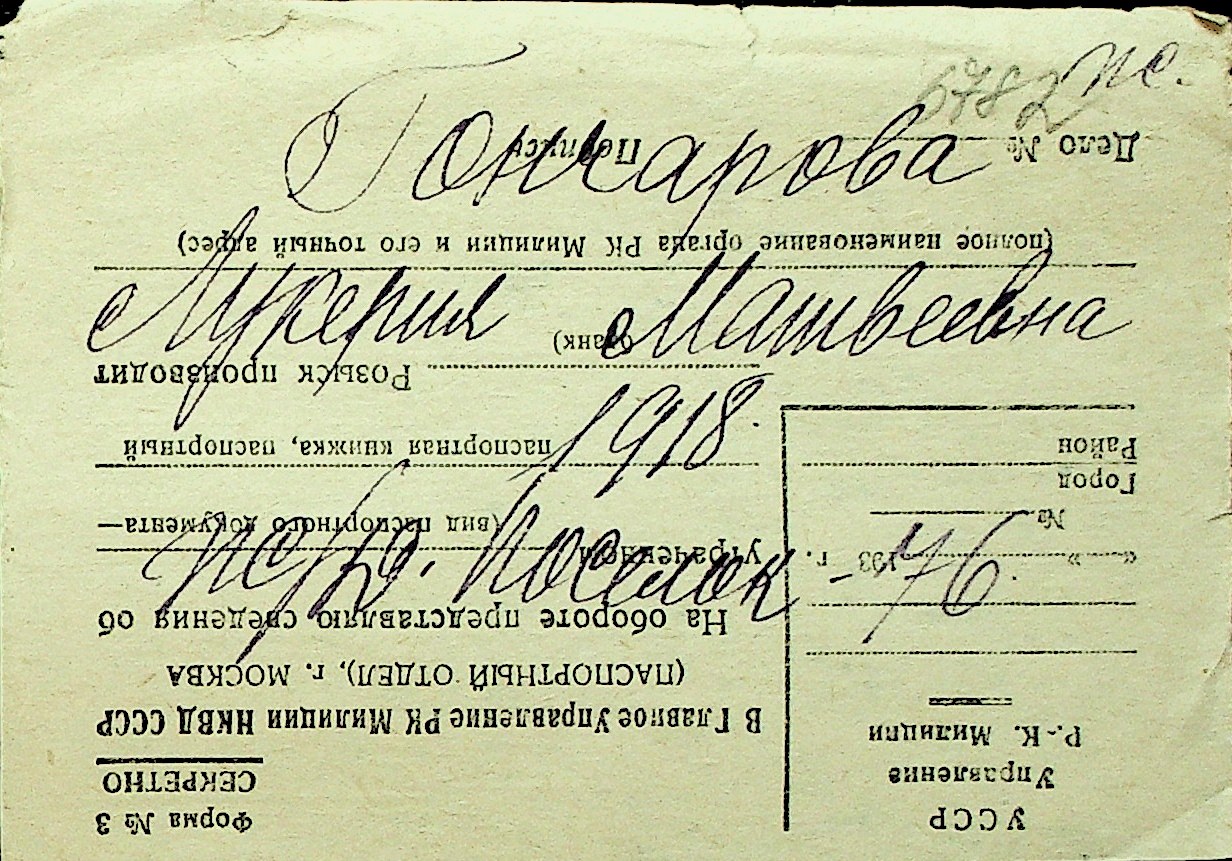 пс.
6782
Гончарова
Лукерия Матвеевна
1918.
Поселок - 76.
Форма № 3
СЕКРЕТНО
В Главное Управление РК Милиции НКВД СССР
(ПАСПОРТНЫЙ ОТДЕЛ), г. МОСКВА
На обороте представляю сведения об
утраченном
(вид паспортного документа—
паспортная книжка, паспортный
бланк)
Розыск производит
(полное наименование органа РК Милиции и его точный адрес)
Подпись
УССР
Управление
Р.-К. Милиции
"    "    193    г.
№
Город
Район
Дело №